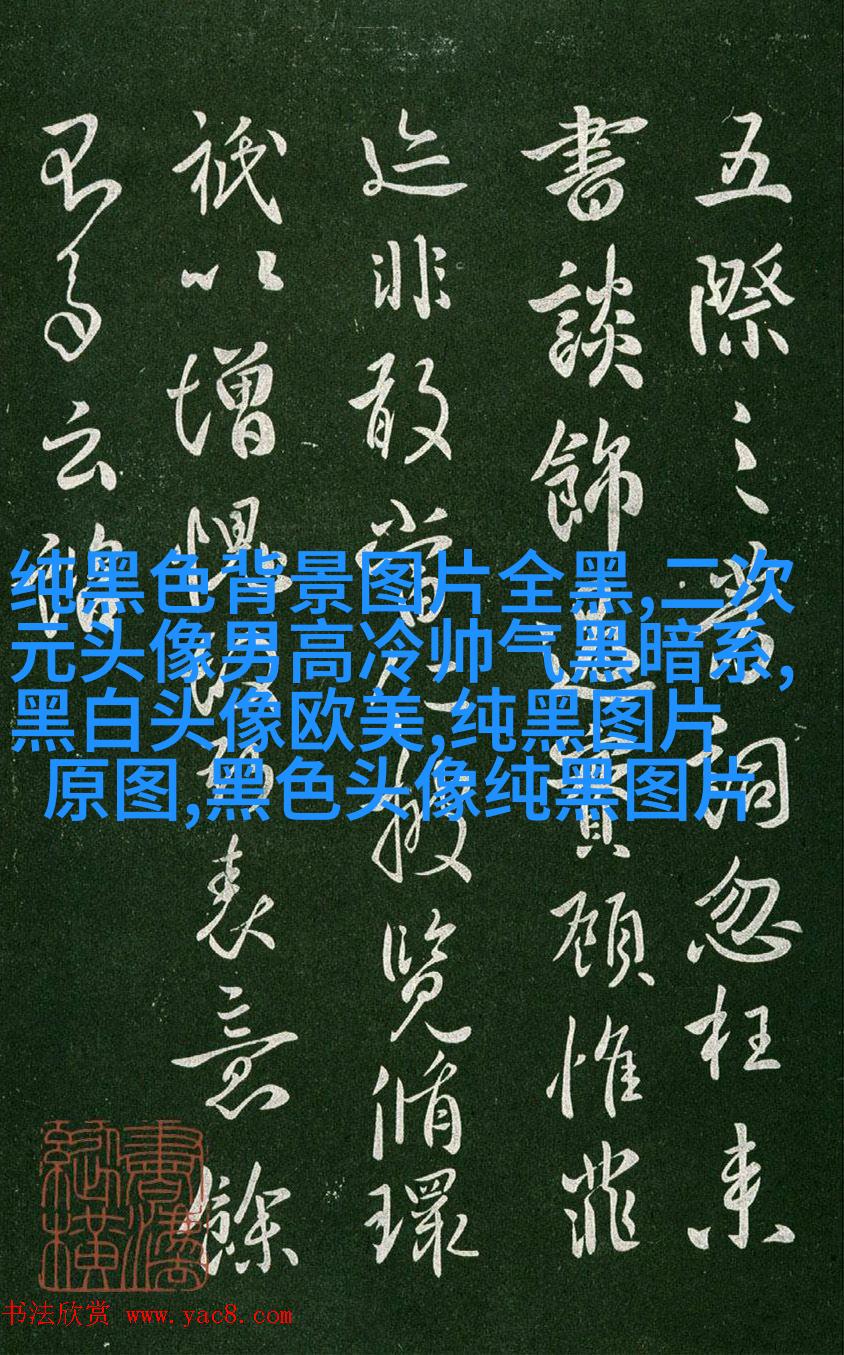 五際之詞忽枉来
書談飾過實顧惟菲
迹非敢當仁披覽循環
祇以增懼表意餘
云
纯黑色背景图片全黑,二次
元头像男高冷帅气黑暗系,
黑白头像欧美,纯黑图片
原图,黑色头像纯黑图片
書法
縱橫
书法欣赏 www.yac8.com